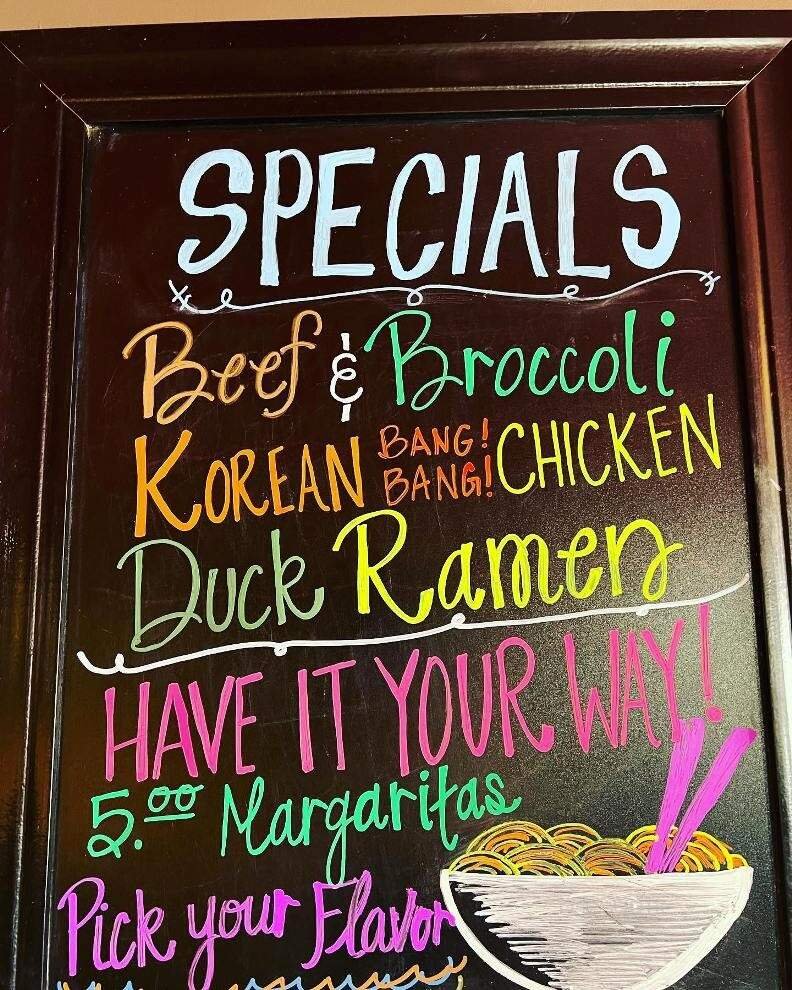 SPECIALS
Beef & Broccoli
KOREAN BANG! BANG! CHICKEN
Duck Ramen
HAVE IT YOUR WAY!
5.00 Margaritas
Pick your Flavor